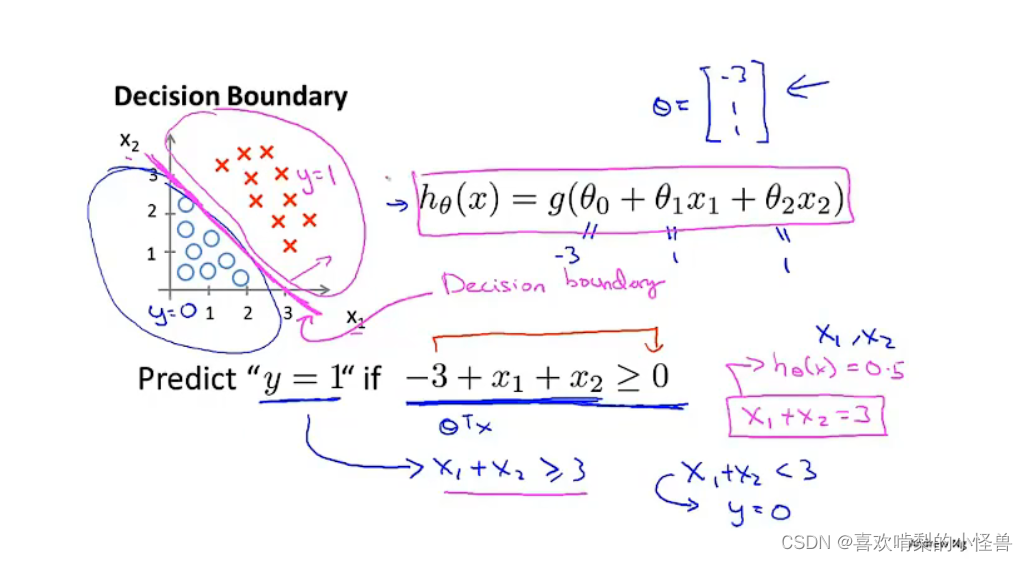 Decision Boundary
θ = [-3 1 1]
x₂
3
2
1
y=1
y=0
1 2 3
x₁
hθ(x) = g(θ₀ + θ₁x₁ + θ₂x₂)
-3 1 1
Decision boundary
x₁, x₂
hθ(x) = 0.5
x₁ + x₂ = 3
Predict “y = 1“ if -3 + x₁ + x₂ ≥ 0
θᵀx
x₁ + x₂ ≥ 3
x₁ + x₂ < 3
y = 0
Andrew Ng
CSDN @喜欢啃梨的小怪兽